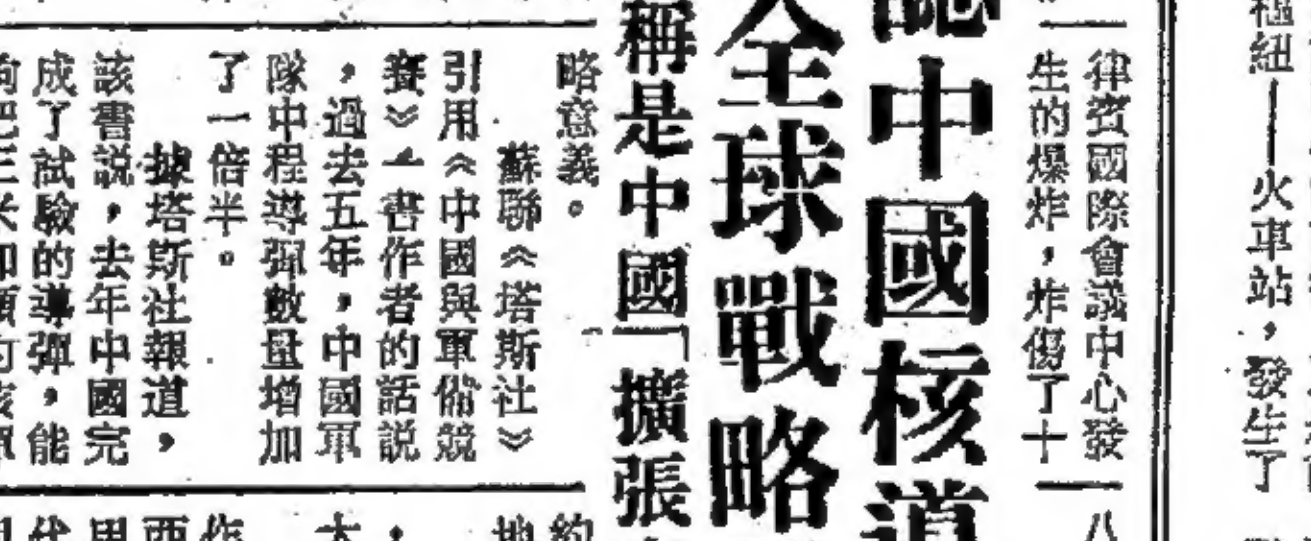 極紐——火車站，發生了
律賓國際會議中心發
生的爆炸，炸傷了十
八
中國核導
全球戰略
稱是中國「擴張
略意義。
蘇聯《塔斯社》
引用《中國與軍備競
賽》一書作者的話說
，過去五年，中國軍
隊中程導彈數量增加
了一倍半。
據塔斯社報道，
該書說，去年中國完
成了試驗的導彈，能
約
地
，
大
作
西